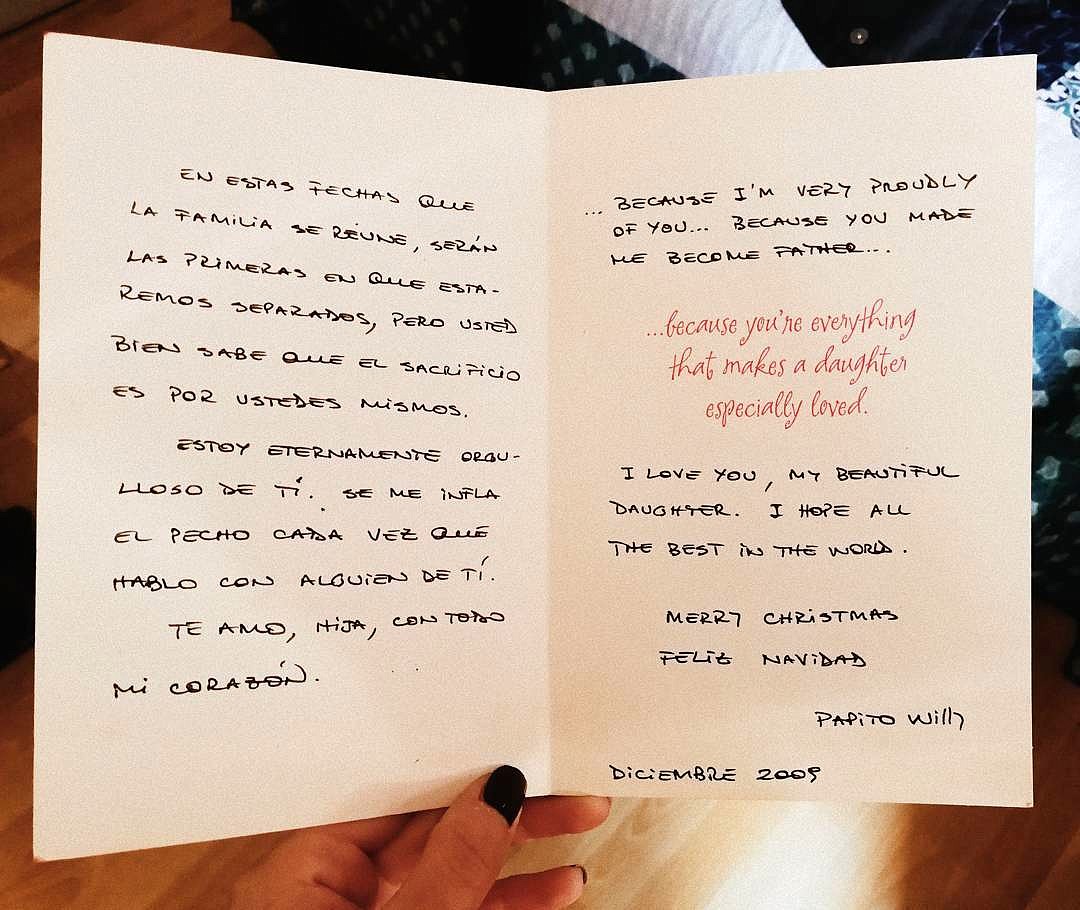 EN ESTAS FECHAS QUE
LA FAMILIA SE REUNE, SERÁN
LAS PRIMERAS EN QUE ESTA-
REMOS SEPARADOS, PERO USTED
BIEN SABE QUE EL SACRIFICIO
ES POR USTEDES MISMOS.
ESTOY ETERNAMENTE ORGU-
LLOSO DE TÍ. SE ME INFLA
EL PECHO CADA VEZ QUE
HABLO CON ALGUIEN DE TÍ.
TE AMO, HIJA, CON TODO
MI CORAZÓN.
... BECAUSE I'M VERY PROUDLY
OF YOU... BECAUSE YOU MADE
ME BECOME FATHER...
...because you're everything
that makes a daughter
especially loved.
I LOVE YOU, MY BEAUTIFUL
DAUGHTER. I HOPE ALL
THE BEST IN THE WORLD.
MERRY CHRISTMAS
FELIZ NAVIDAD
PAPITO Willy
DICIEMBRE 2009